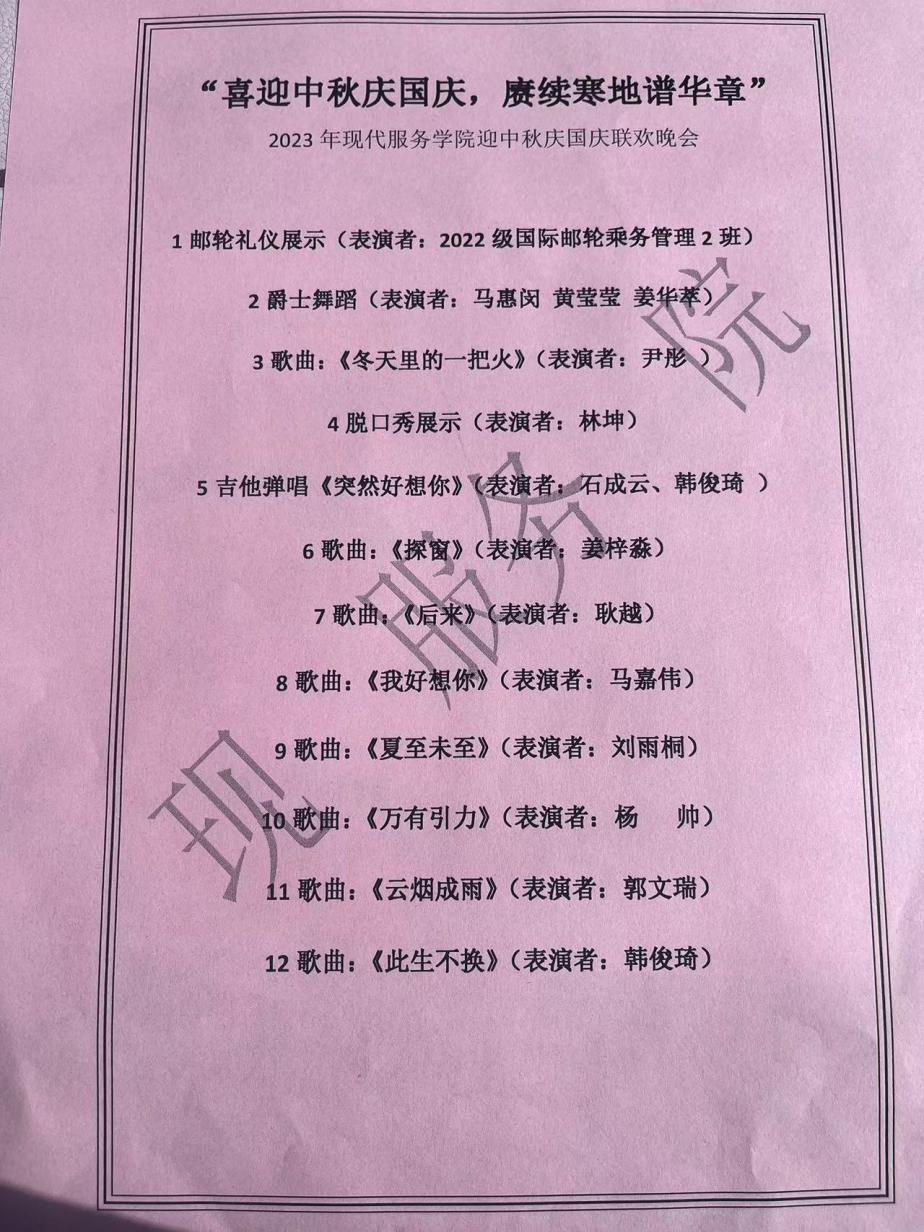 “喜迎中秋庆国庆，赓续寒地谱华章”
2023 年现代服务学院迎中秋庆国庆联欢晚会
1 邮轮礼仪展示（表演者：2022 级国际邮轮乘务管理 2 班）
2 爵士舞蹈（表演者：马惠闵 黄莹莹 姜华萃）
3 歌曲：《冬天里的一把火》（表演者：尹彤 ）
4 脱口秀展示（表演者：林坤）
5 吉他弹唱《突然好想你》（表演者：石成云、韩俊琦 ）
6 歌曲：《探窗》（表演者：姜梓淼）
7 歌曲：《后来》（表演者：耿越）
8 歌曲：《我好想你》（表演者：马嘉伟）
9 歌曲：《夏至未至》（表演者：刘雨桐）
10 歌曲：《万有引力》（表演者：杨　帅）
11 歌曲：《云烟成雨》（表演者：郭文瑞）
12 歌曲：《此生不换》（表演者：韩俊琦）
现 服务 院